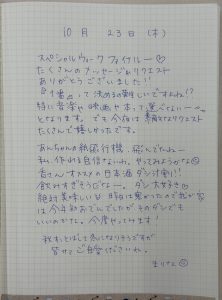 10月 23日 (木)
スペシャルウィーク ファイナルー♡
たくさんのメッセージ&リクエスト
ありがとうございました!!
"1番"って決めるの難しいですよね!?
特に音楽や映画や本って選べないーっ
となります。でも今夜は素敵なリクエスト
たくさんで嬉しかったです。
あんちゃんの紙飛行機、飛んでんねー
私、作れる自信ないわ。やってみようかな☺
皆さんオススメの日本酒 ダシ割り!!
飲みすぎそうだなー。ダシ大好き♡
絶対美味しい 昨日は寒かったので我が家
は今年初おでんでしたが、そのダシでも
いいのかな。今度やってみます!
秋すっとばして冬になりそうですが
皆さんご自愛くださいね。